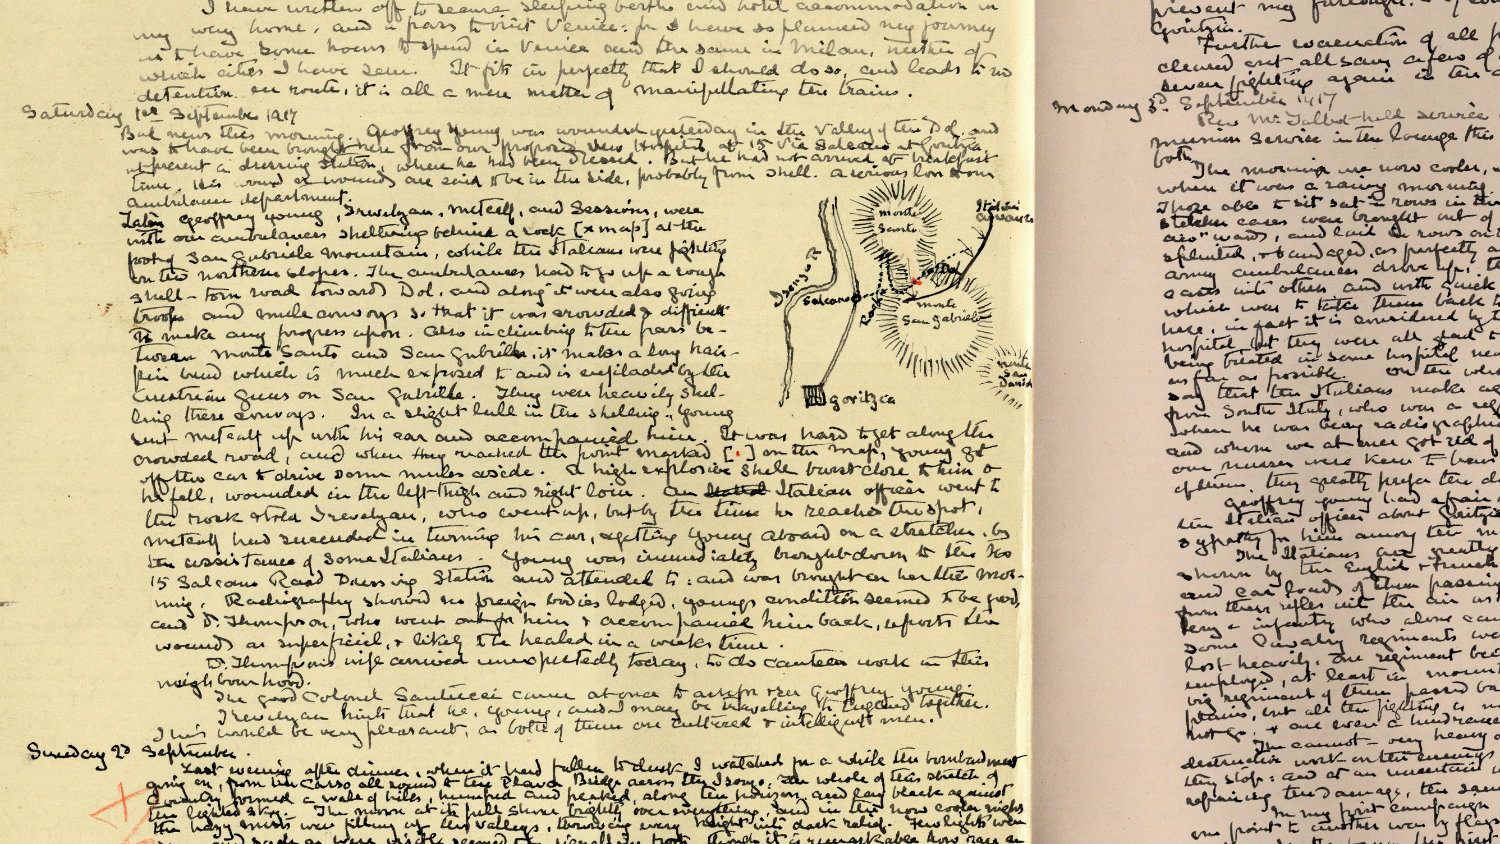 I have written off to secure sleeping berths and hotel accommodation in
my way home, and a pass to visit Venice: for I have so planned my journey
as to have some hours to spend in Venice and the same in Milan, neither of
which cities I have seen. It fits in perfectly that I should do so, and leads to no
detention en route, it is all a mere matter of manipulating the trains.
Saturday 1st September 1917
Bad news this morning. Geoffrey Young was wounded yesterday in the Valley of the Dol, and
was to have been brought here from our proposed new Hospital at 15 Via Salcano at Goritzia,
at present a dressing station, where he had been dressed. But he had not arrived at breakfast
time. His wound or wounds are said to be in the side, probably from shell. A serious loss to our
ambulance department.
Later Geoffrey Young, Trevelyan, Metcalf, and Sessions, were
with our ambulances sheltering behind a rock [x map] at the
foot of San Gabriele mountain, while the Italians were fighting
on the northern slopes. The ambulances had to go up a rough
shell-torn road toward Dol, and along it were also going
troops and mule convoys so that it was crowded & difficult
to make any progress upon. Also in climbing to the pass be-
tween Monte Santo and San Gabriele, it makes a long hair-
pin bend which is much exposed to and is enfiladed by the
Austrian guns on San Gabriele. They were heavily shel-
ling these convoys. In a slight lull in the shelling, Young
sent Metcalf up with his car and accompanied him. It was hard to get along the
crowded road, and when they reached the point marked [•] on the map, Young got
off the car to drive some mules aside. A high explosive shell burst close to him &
he fell, wounded in the left thigh and right loin. An Italian officer went to
the rock & told Trevelyan, who went up, but by the time he reached the spot,
Metcalf had succeeded in turning his car, & getting Young aboard on a stretcher, by
the assistance of some Italians. Young was immediately brought down to the No
15 Salcano Road Dressing Station and attended to: and was brought on here this mor-
ning. Radiography showed no foreign bodies lodged, Youngs condition seemed to be good,
and Dr. Thompson, who went out for him & accompanied him back, reports the
wounds as superficial, & likely to be healed in a weeks time.
Dr. Thompson's wife arrived unexpectedly today, to do canteen work in this
neighbourhood.
The good Colonel Santucci came at once to ask for & see Geoffrey Young.
Trevelyan hints that he, Young, and I may be travelling to England together.
This would be very pleasant, as both of them are cultured & intelligent men.
Sunday 2d September.
Last evening after dinner, when it had fallen to dusk I watched for a while the bombardment
going on, from the Carso all round to the Plava Bridge across the Isonzo. The whole of this stretch of
country formed a wall of hills, humped and peaked, along the horizon, and lay black against
the lighted sky. The moon at its full shone brightly over everything, and in the now cooler nights
the hazy mists were filling up the valleys, throwing every height into dark relief. Few lights were
Monte
Santo
Italian
advance
Isonzo R
Salcano
Dol
Rock
Monte
San Gabriele
Monte
San
Daniele
Goritzia
prevent my
Goritzia.
Further evacuation of all
cleared out all save a few of
seven fighting again in the
Monday 3d September 1917
Rev Mr Talbot held service
mission service in the lounge this
both
The mornings are now cooler,
when it was a rainy morning.
Those able to sit sat in rows in the
stretcher cases were brought out of
wards, and laid in rows on
splinted, & bandaged, as perfectly a
army ambulances drove up, t
cases into others and with quick
which was to take them back to
here, in fact it is considered by t
hospital, but they were all glad t
being treated in some hospital nea
as far as possible. On the who
say that the Italians make
from South Italy, who was a
when he was being radiographed
and whom we at once got rid of
our nurses were keen to have
of them, they greatly prefer the
Geoffrey Young had
an Italian officer about Goritzia
sympathy for him among the m
The Italians are greatly
shown by the English & French
and car loads of them passing
from their rifles into the air
infantry who alone can
Some Cavalry regiments
lost heavily. One regiment
employed, at least in
big regiment of them passed
plains, but all the fighting is
not go.
The cannot - very heavy
destructive work on the enemy's
they stop: and at an uncertain
repairing the damage, the same
In my first campaign
one point to another was by flags